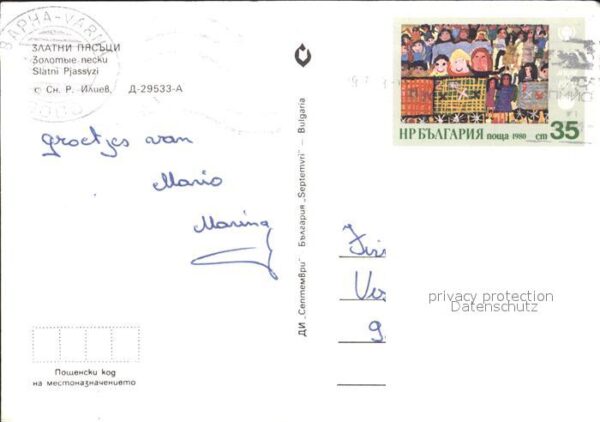 ВАРНА-VARNA
ЗЛАТНИ ПЯСЪЦИ
Золотые пески
Slatni Pjassyzi
Сн. Р. Илиев, Д-29533-А
groetjes van
Mario
Marina
Пощенски код
на местоназначението
ДИ „Септември" България „Septemvri" – Bulgaria
НРБЪЛГАРИЯ поща 1980 cm 35
privacy protection
Datenschutz